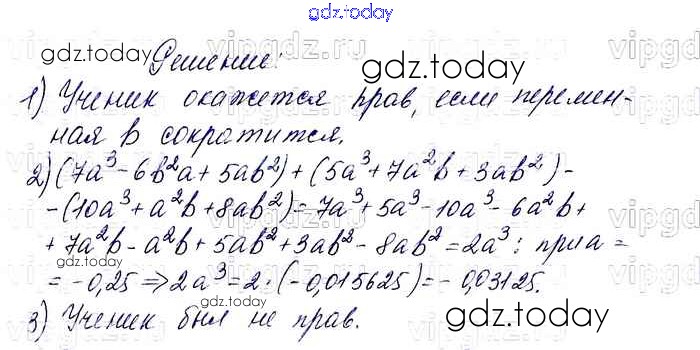 gdz.today
gdz.today
Решение:
gdz.today
1) Ученик окажется прав, если перемен-
ная в сократится.
2) (7a³ - 6b²a + 5ab²) + (5a³ + 7a²b + 3ab²) -
- (10a³ + a²b + 8ab²) = 7a³ + 5a³ - 10a³ - 6a²b +
+ 7a²b - a²b + 5ab² + 3ab² - 8ab² = 2a³; при a =
= -0,25 ⇒ 2a³ = 2 · (-0,015625) = -0,03125.
gdz.today
3) Ученик был не прав.
gdz.today